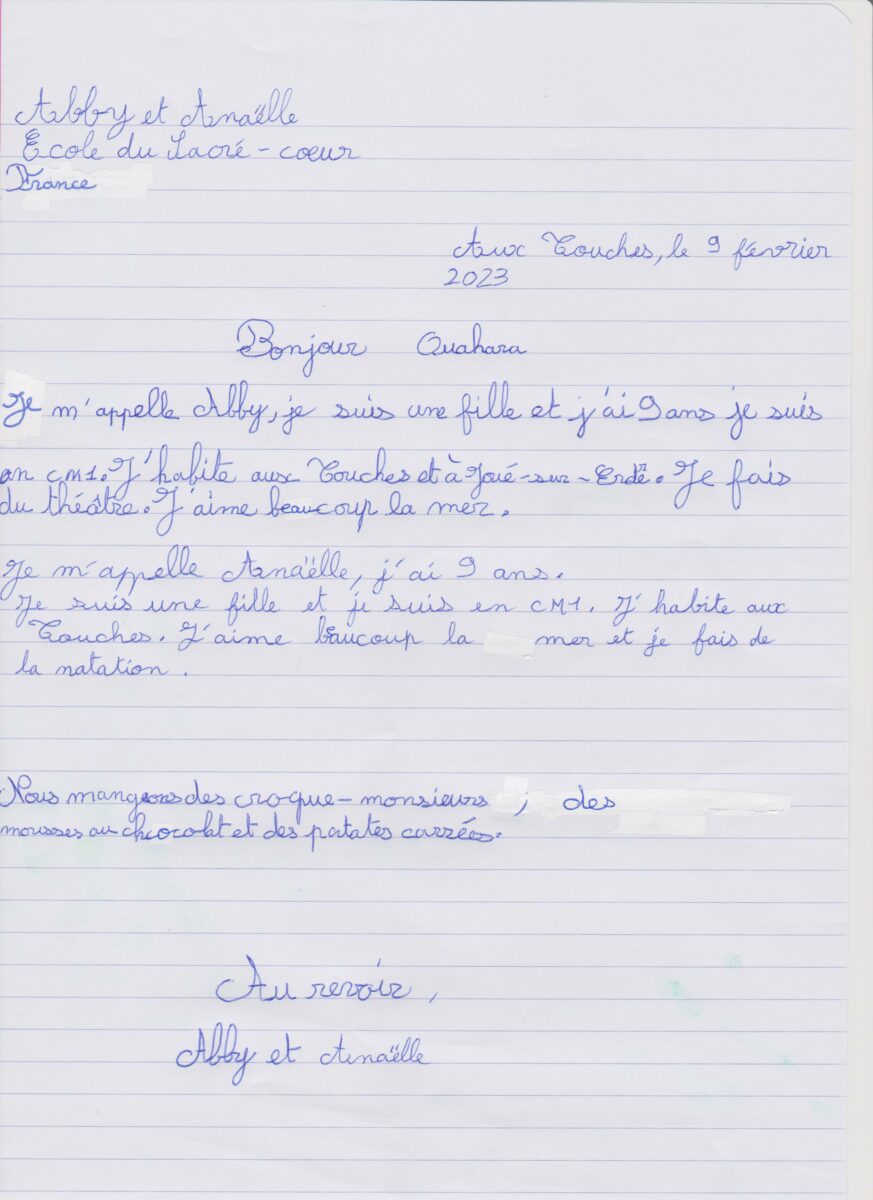 Abby et Anaëlle
Ecole du Sacré-coeur
France
Aux Touches, le 9 février
2023
Bonjour Ouahara
Je m'appelle Abby, je suis une fille et j'ai 9 ans je suis
en CM1. J'habite aux Touches et à Joué-sur-Erdre. Je fais
du théâtre. J'aime beaucoup la mer.
Je m'appelle Anaëlle, j'ai 9 ans.
Je suis une fille et je suis en CM1. J'habite aux
Touches. J'aime beaucoup la mer et je fais de
la natation.
Nous mangeons des croque-monsieurs, des
mousses au chocolat et des patates carrées.
Au revoir,
Abby et Anaëlle